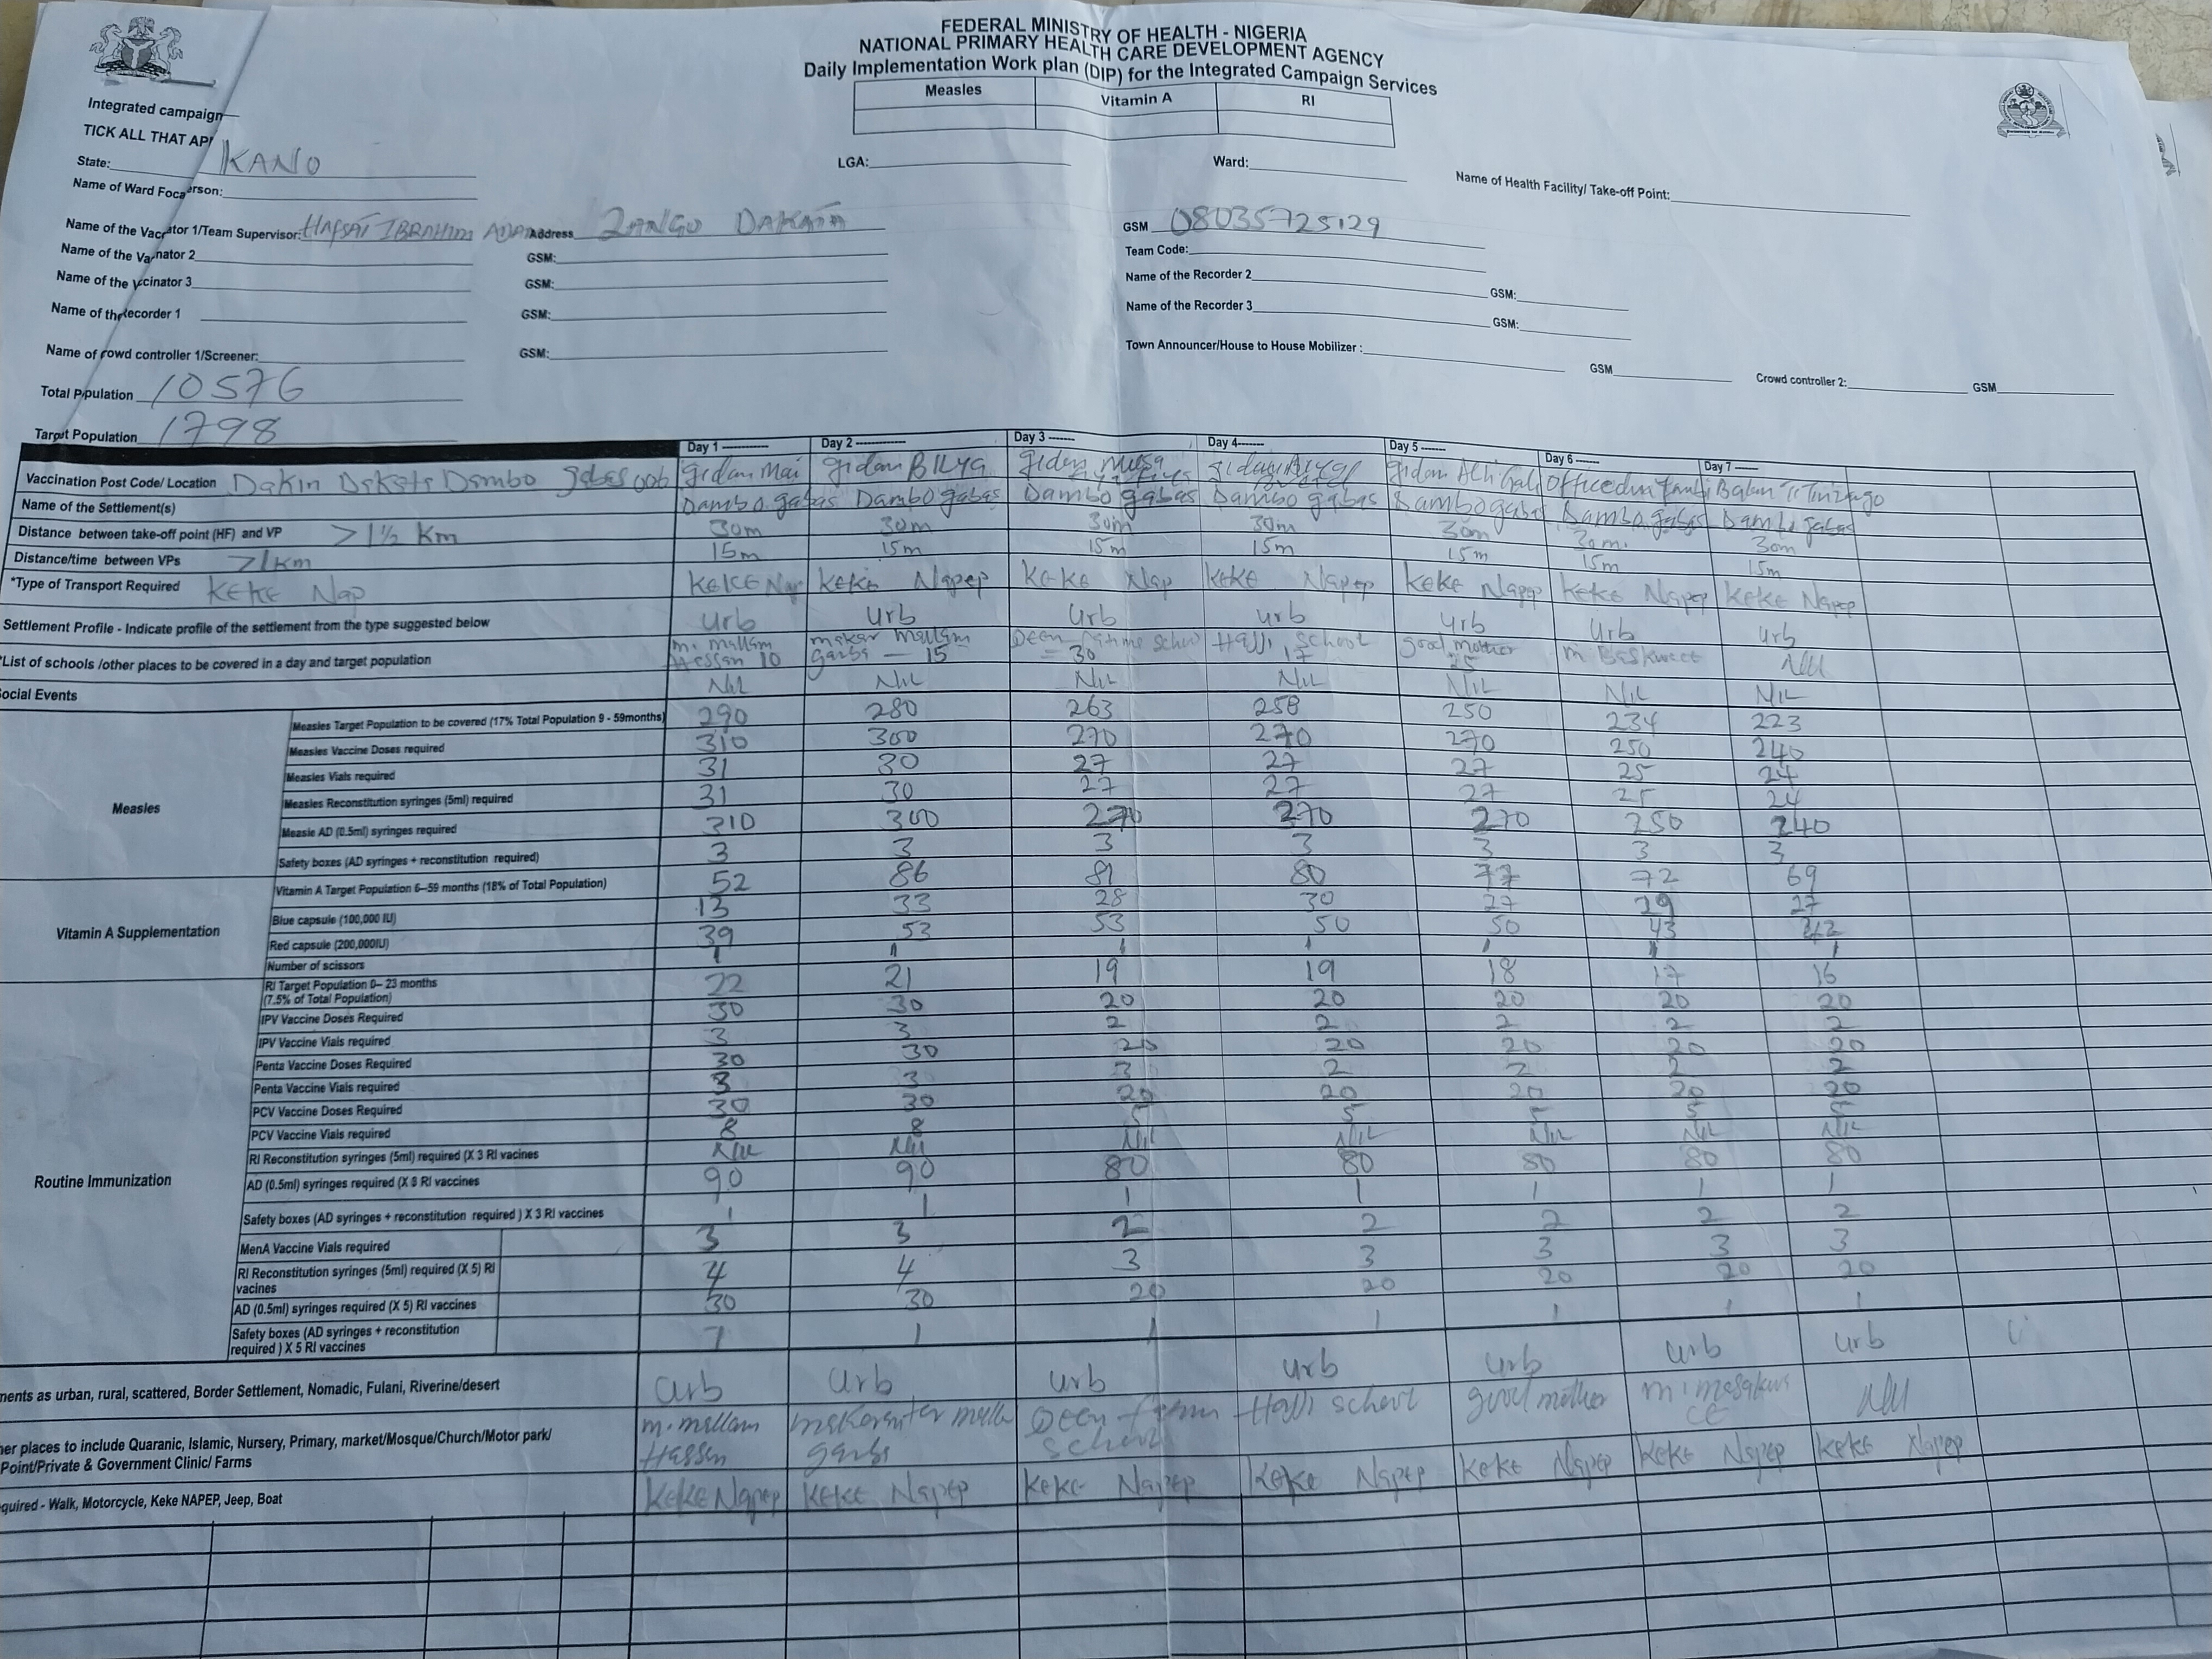 FEDERAL MINISTRY OF HEALTH - NIGERIA
NATIONAL PRIMARY HEALTH CARE DEVELOPMENT AGENCY
Daily Implementation Work plan (DIP) for the Integrated Campaign Services
Integrated campaign
TICK ALL THAT AP
Measles Vitamin A RI
State: KANO LGA: Ward: Name of Health Facility/ Take-off Point:
Name of Ward Foca erson:
Name of the Vac ator 1/Team Supervisor: HAFSAT IBRAHIM Address DAKATA GSM 08035725129
Name of the Va nator 2 GSM: Team Code:
Name of the V cinator 3 GSM: Name of the Recorder 2 GSM:
Name of th recorder 1 GSM: Name of the Recorder 3 GSM:
Name of rowd controller 1/Screener: GSM: Town Announcer/House to House Mobilizer : GSM Crowd controller 2: GSM
Total Population 10576
Target Population 1798
Day 1 Day 2 Day 3 Day 4 Day 5 Day 6 Day 7
Vaccination Post Code/ Location
Name of the Settlement(s) Dambo gabas Dambo gabas Dambo gabas Dambo gabas Dambo gabas Dambo gabas Dambo gabas
Distance between take-off point (HF) and VP >1½ km 30m 30m 30m 30m 30m 30m 30m
Distance/time between VPs >1km 15m 15m 15m 15m 15m 15m 15m
*Type of Transport Required Keke Nap Keke Nap Keke Napep Keke Nap Keke Napep Keke Napep Keke Napep Keke Napep
Settlement Profile - Indicate profile of the settlement from the type suggested below Urb Urb Urb Urb Urb Urb Urb
*List of schools /other places to be covered in a day and target population m. mallam Hassan 10 15 30 school 17 good mother Nil
ocial Events NIL NIL NIL NIL NIL NIL NIL
Measles
Measles Target Population to be covered (17% Total Population 9 - 59months) 290 280 263 258 250 234 223
Measles Vaccine Doses required 310 300 270 270 270 250 240
Measles Vials required 31 30 27 27 27 25 24
Measles Reconstitution syringes (5ml) required 31 30 27 27 27 25 24
Measle AD (0.5ml) syringes required 310 300 270 270 270 250 240
Safety boxes (AD syringes + reconstitution required) 3 3 3 3 3 3 3
Vitamin A Supplementation
Vitamin A Target Population 6-59 months (18% of Total Population) 52 86 81 80 77 72 69
Blue capsule (100,000 IU) 13 33 28 30 27 29 27
Red capsule (200,000IU) 39 53 53 50 50 43 42
Number of scissors 1 1 1 1 1 1 1
Routine Immunization
RI Target Population 0- 23 months (7.5% of Total Population) 22 21 19 19 18 17 16
IPV Vaccine Doses Required 30 30 20 20 20 20 20
IPV Vaccine Vials required 3 3 2 2 2 2 2
Penta Vaccine Doses Required 30 30 20 20 20 20 20
Penta Vaccine Vials required 3 3 2 2 2 2 2
PCV Vaccine Doses Required 30 30 20 20 20 20 20
PCV Vaccine Vials required 8 8 5 5 5 5 5
RI Reconstitution syringes (5ml) required (X 3 RI vacines NIL Nil NIL NIL NIL NIL NIL
AD (0.5ml) syringes required (X 9 RI vaccines 90 90 80 80 80 80 80
Safety boxes (AD syringes + reconstitution required ) X 3 RI vaccines 1 1 1 1 1 1 1
MenA Vaccine Vials required 3 3 2 2 2 2 2
RI Reconstitution syringes (5ml) required (X 5) RI vacines 4 4 3 3 3 3 3
AD (0.5ml) syringes required (X 5) RI vaccines 30 30 20 20 20 20 20
Safety boxes (AD syringes + reconstitution required ) X 5 RI vaccines 1 1 1 1 1 1 1
ments as urban, rural, scattered, Border Settlement, Nomadic, Fulani, Riverine/desert Urb Urb Urb Urb Urb Urb Urb
er places to include Quaranic, Islamic, Nursery, Primary, market/Mosque/Church/Motor park/ Point/Private & Government Clinic/ Farms m. mallam Hassan good mother Nil
quired - Walk, Motorcycle, Keke NAPEP, Jeep, Boat Keke Napep Keke Napep Keke Napep Keke Napep Keke Napep Keke Napep Keke Napep